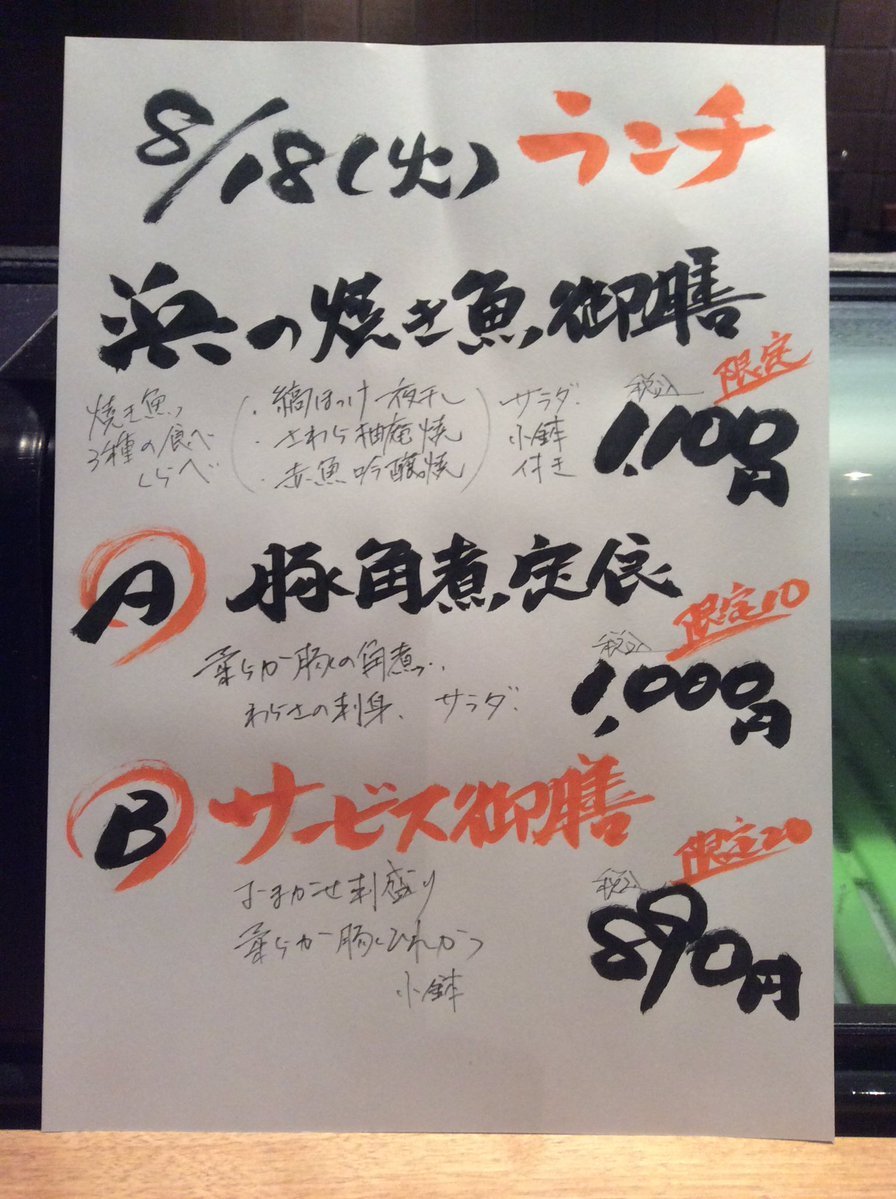 8/18(火) ランチ
浜の焼き魚御膳
限定
税込
1,100円
焼き魚
3種の食べ
くらべ
・縞ほっけ一夜干し
・さわら柚庵焼
・赤魚吟醸焼
サラダ
小鉢
付き
A 豚角煮定食
限定10
税込
1,000円
柔らか豚の角煮
わらさの刺身、サラダ
B サービス御膳
限定20
税込
890円
おまかせ刺盛り
柔らか豚ひれかつ
小鉢